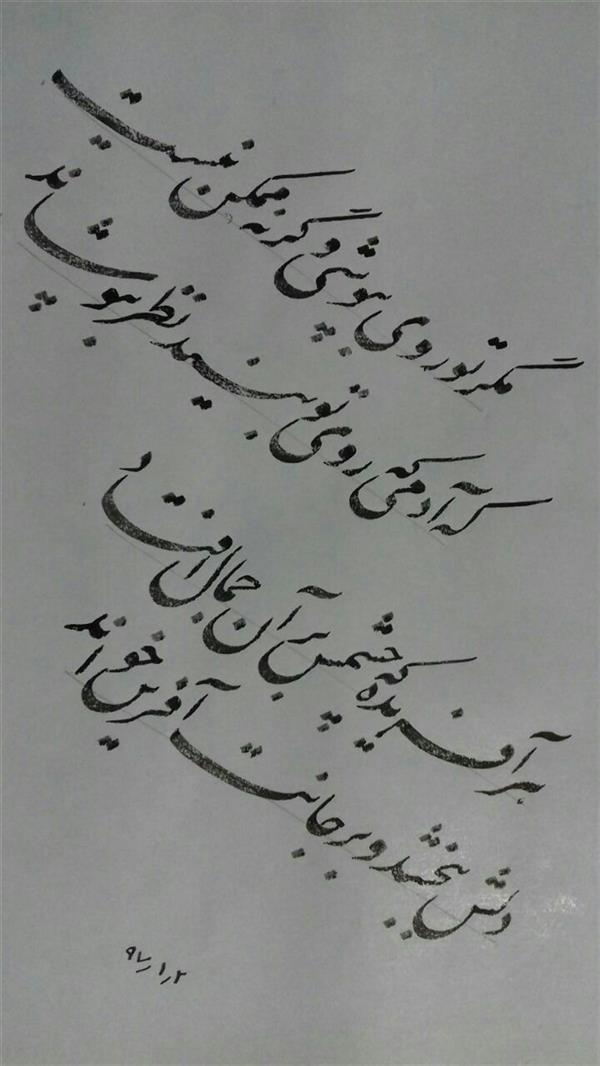 مگر تو روی بپوشی و گرنه ممکن نیست
که آدمی که روی تو بیند نظر بپوشاند
هر آفریده که چشمش بر آن جمال افتاد
دلش ببخشد و بر جانت آفرین خواند
۹۷٫۱٫۲